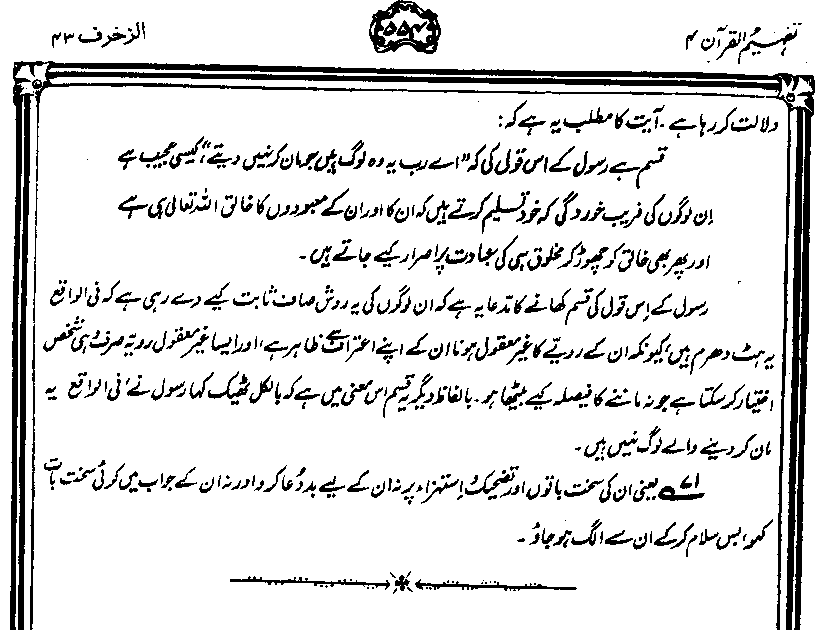 تفہیم القرآن ۴
۵۵۴
الزخرف ۴۳
دلالت کر رہا ہے۔ آیت کا مطلب یہ ہے کہ:
قسم ہے رسول کے اس قول کی کہ ”اے رب یہ وہ لوگ ہیں جو مان کر نہیں دیتے“، کیسی عجیب ہے
اِن لوگوں کی فریب خوردگی کہ خود تسلیم کرتے ہیں کہ ان کا اور ان کے معبودوں کا خالق اللہ تعالیٰ ہی ہے
اور پھر بھی خالق کو چھوڑ کر مخلوق ہی کی عبادت پر اصرار کیے جاتے ہیں۔
رسول کے اِس قول کی قسم کھانے کا مدعا یہ ہے کہ ان لوگوں کی یہ روش صاف ثابت کیے دے رہی ہے کہ فی الواقع
یہ ہٹ دھرم ہیں، کیونکہ ان کے رویّے کا غیر معقول ہونا ان کے اپنے اعتراف سے ظاہر ہے، اور ایسا غیر معقول رویّہ صرف وہی شخص
اختیار کر سکتا ہے جو نہ ماننے کا فیصلہ کیے بیٹھا ہو۔ بالفاظ دیگر یہ قسم اس معنی میں ہے کہ بالکل ٹھیک کہا رسول نے، فی الواقع یہ
مان کر دینے والے لوگ نہیں ہیں۔
۷۱ یعنی ان کی سخت باتوں اور تضحیک و استہزاء پر نہ ان کے لیے بددعا کرو اور نہ ان کے جواب میں کوئی سخت بات
کہو، بس سلام کر کے ان سے الگ ہو جاؤ۔